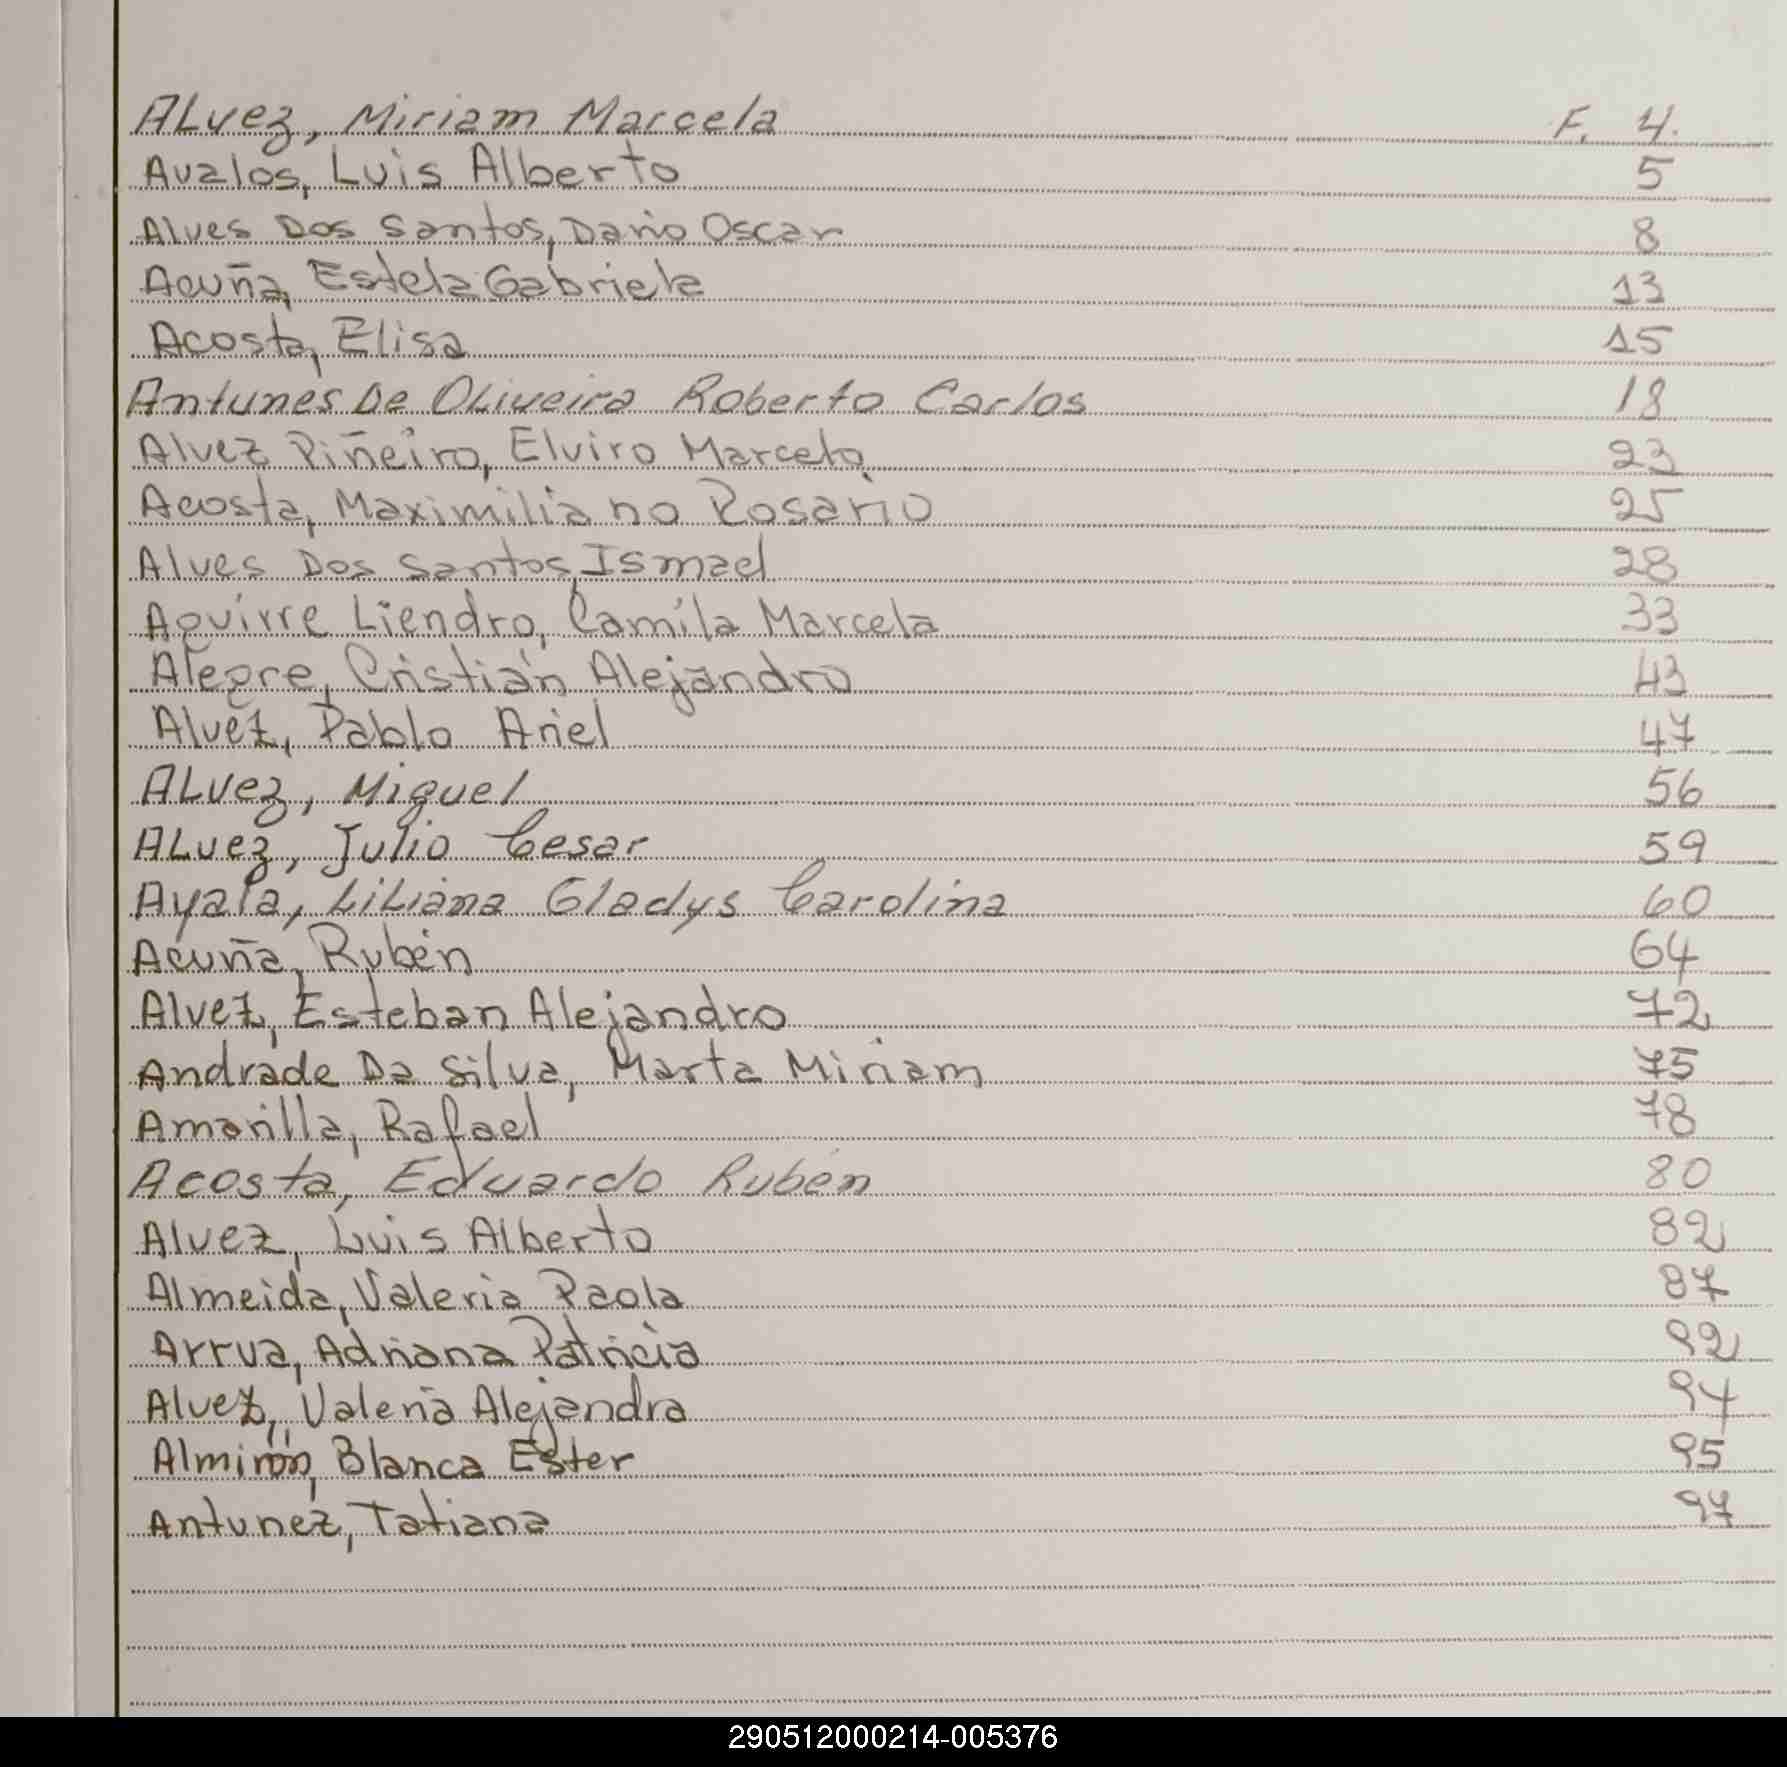 Alvez, Miriam Marcela F. 4.
Avalos, Luis Alberto 5
Alves Dos Santos, Dario Oscar 8
Acuña, Estela Gabriela 13
Acosta, Elisa 15
Antunes De Oliveira Roberto Carlos 18
Alvez Piñeiro, Elviro Marcelo 23
Acosta, Maximiliano Rosario 25
Alves Dos Santos, Ismael 28
Aguirre Liendro, Camila Marcela 33
Alegre, Cristián Alejandro 43
Alvez, Pablo Ariel 47
Alvez, Miguel 56
Alvez, Julio Cesar 59
Ayala, Liliana Gladys Carolina 60
Acuña, Rubén 64
Alvez, Esteban Alejandro 72
Andrade Da Silva, Marta Miriam 75
Amarilla, Rafael 78
Acosta, Eduardo Rubén 80
Alvez, Luis Alberto 82
Almeida, Valeria Paola 87
Arrua, Adriana Patricia 92
Alvez, Valeria Alejandra 94
Almirón, Blanca Ester 95
Antunez, Tatiana 97
290512000214-005376